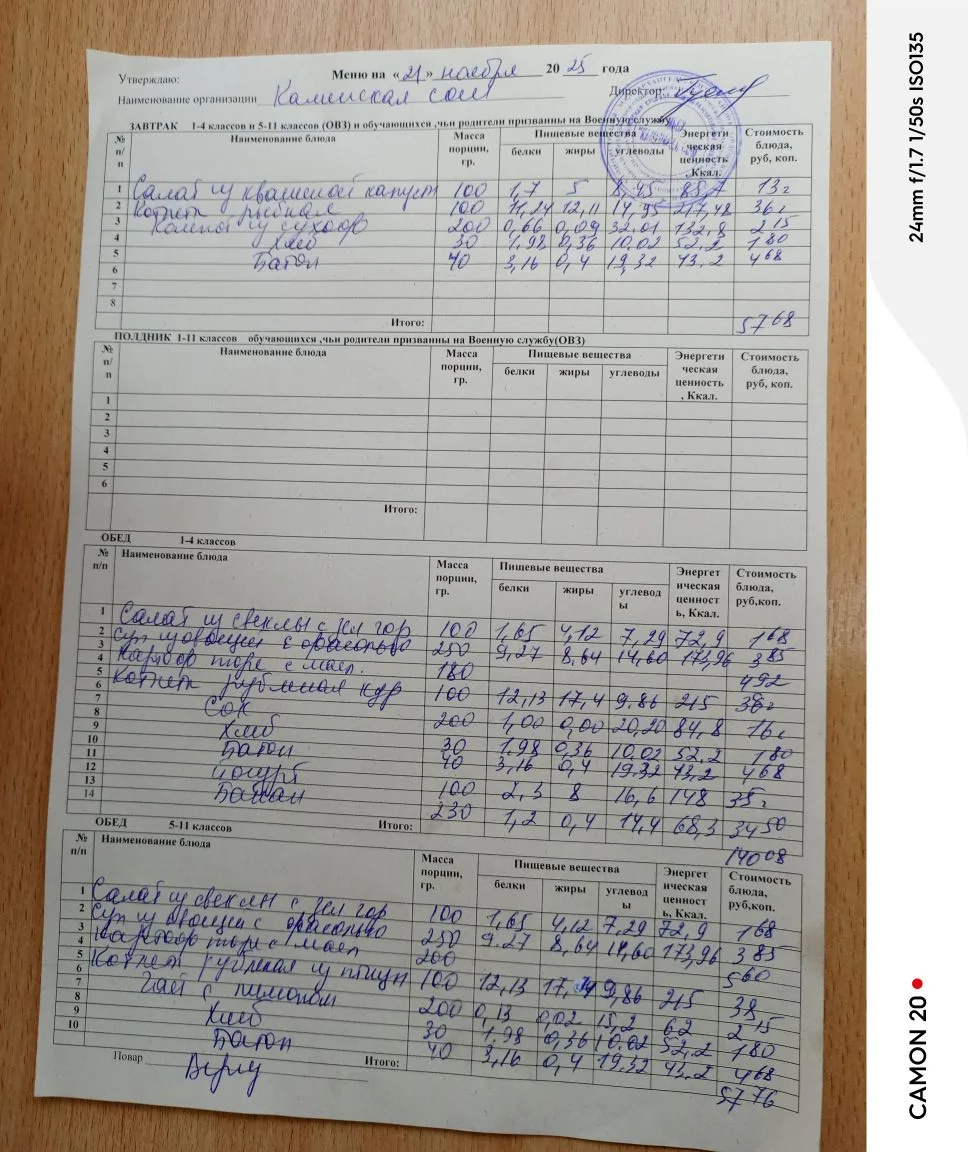 Утверждаю:
Меню на «21» ноября 2025 года
Наименование организации Каменская сош Директор:
ЗАВТРАК 1-4 классов и 5-11 классов (ОВЗ) и обучающихся ,чьи родители призванны на Военную службу
№ п/п Наименование блюда Масса порции, гр. Пищевые вещества Энергети ческая ценность , Ккал. Стоимость блюда, руб, коп.
белки жиры углеводы
1 Салат из квашеной капуст 100 1,7 5 8,45 85,7 13
2 Котлет рыбная 100 11,24 12,11 14,95 217,48 36
3 Компот из сухофр 200 0,66 0,09 32,01 132,8 2 15
4 Хлеб 30 1,98 0,36 10,02 52,2 1 80
5 Батон 40 3,16 0,4 19,32 43.2 4 68
6
7
8
Итого: 57 68
ПОЛДНИК 1-11 классов обучающихся ,чьи родители призванны на Военную службу(ОВЗ)
№ п/п Наименование блюда Масса порции, гр. Пищевые вещества Энергети ческая ценность , Ккал. Стоимость блюда, руб, коп.
белки жиры углеводы
1
2
3
4
5
6
Итого:
ОБЕД 1-4 классов
№ п/п Наименование блюда Масса порции, гр. Пищевые вещества Энергет ическая ценност ь, Ккал. Стоимость блюда, руб,коп.
белки жиры углевод ы
1 Салат из свеклы с сол гор 100 1,65 4,12 7,29 72,9 1 68
2 Суп из овощей с фасолью 250 9,27 8,64 14,60 173,96 3 85
3 Картоф пюре с масл. 180 4 92
4 Котлет рубленая кур 100 12,13 17,4 9.86 215 38
5 Сок 200 1,00 0,00 20,20 84,8 16
6 Хлеб 30 1.98 0,36 10.02 52.2 1 80
7 Батон 40 3,16 0,4 19.32 43,2 4 68
8 Йогурт 100 2,3 8 16,6 148 35
9 Банан 230 1,2 0,4 14,4 68,3 34 50
10
11
12
13
14
Итого: 140 08
ОБЕД 5-11 классов
№ п/п Наименование блюда Масса порции, гр. Пищевые вещества Энергет ическая ценност ь, Ккал. Стоимость блюда, руб,коп.
белки жиры углевод ы
1 Салат из свеклы с сол гор 100 1,65 4,12 7,29 72,9 1 68
2 Суп из овощей с фасолью 250 9.27 8,64 14,60 173,96 3 85
3 Картоф пюре с масл 200 5 60
4 Котлет рубленая из птицы 100 12,13 17,4 9,86 215 38
5 Чай с лимоном 200 0,13 0,02 15,2 62 2 15
6 Хлеб 30 1.98 0,36 10.02 52,2 1 80
7 Батон 40 3,16 0,4 19.32 43.2 4 68
8
9
10
Повар Итого: 57 76
24mm f/1.7 1/50s ISO135
CAMON 20